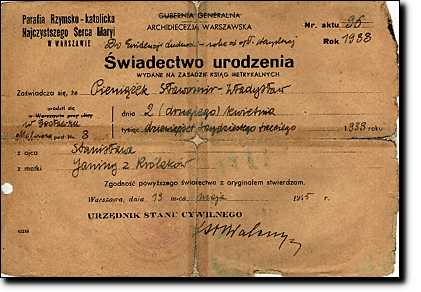 Parafia Rzymsko-katolicka
Najczystszego Serca Maryi
w WARSZAWIE
GUBERNIA GENERALNA
ARCHIDIECEZJA WARSZAWSKA
Nr. aktu 36
Rok 1933
Świadectwo urodzenia
WYDANE NA ZASADZIE KSIĄG METRYKALNYCH.
Zaświadcza się, że Pieniążek Sławomir-Władysław
urodził się dnia 2 (drugiego) kwietnia
w Warszawie przy ulicy
pod Nr. 3 tysiąc dziewięćset trzydziestego trzeciego 1933 roku
z ojca Stanisława
z matki Janiny z Królaków
Zgodność powyższego świadectwa z oryginałem stwierdzam.
Warszawa, dnia 13 m-ca maja 1945 r.
URZĘDNIK STANU CYWILNEGO